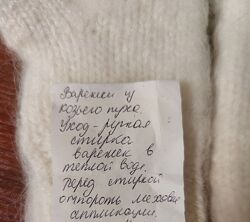 Варежки из
козьего пуха.
Уход - ручная
стирка
варежек в
тёплой воде.
Перед стиркой
отпороть меховые
аппликации.